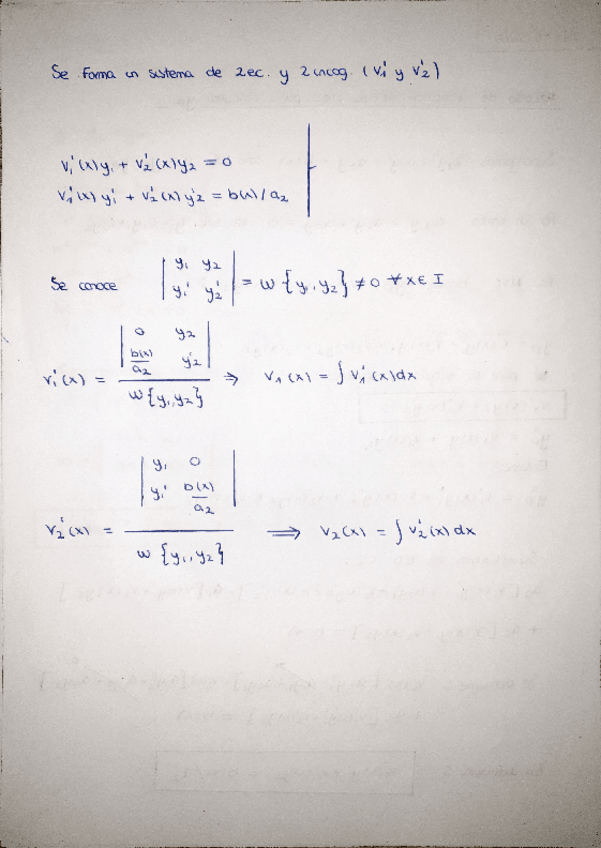 Se forma un sistema de 2 ec. y 2 incog. (v₁' y v₂')
v₁'(x)y₁ + v₂'(x)y₂ = 0
v₁'(x)y₁' + v₂'(x)y₂' = b(x)/a₂
Se conoce | y₁ y₂ ; y₁' y₂' | = W{y₁,y₂} ≠ 0 ∀ x ∈ I
v₁'(x) = | 0 y₂ ; b(x)/a₂ y₂' | / W{y₁,y₂} ⇒ v₁(x) = ∫ v₁'(x)dx
v₂'(x) = | y₁ 0 ; y₁' b(x)/a₂ | / W{y₁,y₂} ⇒ v₂(x) = ∫ v₂'(x)dx